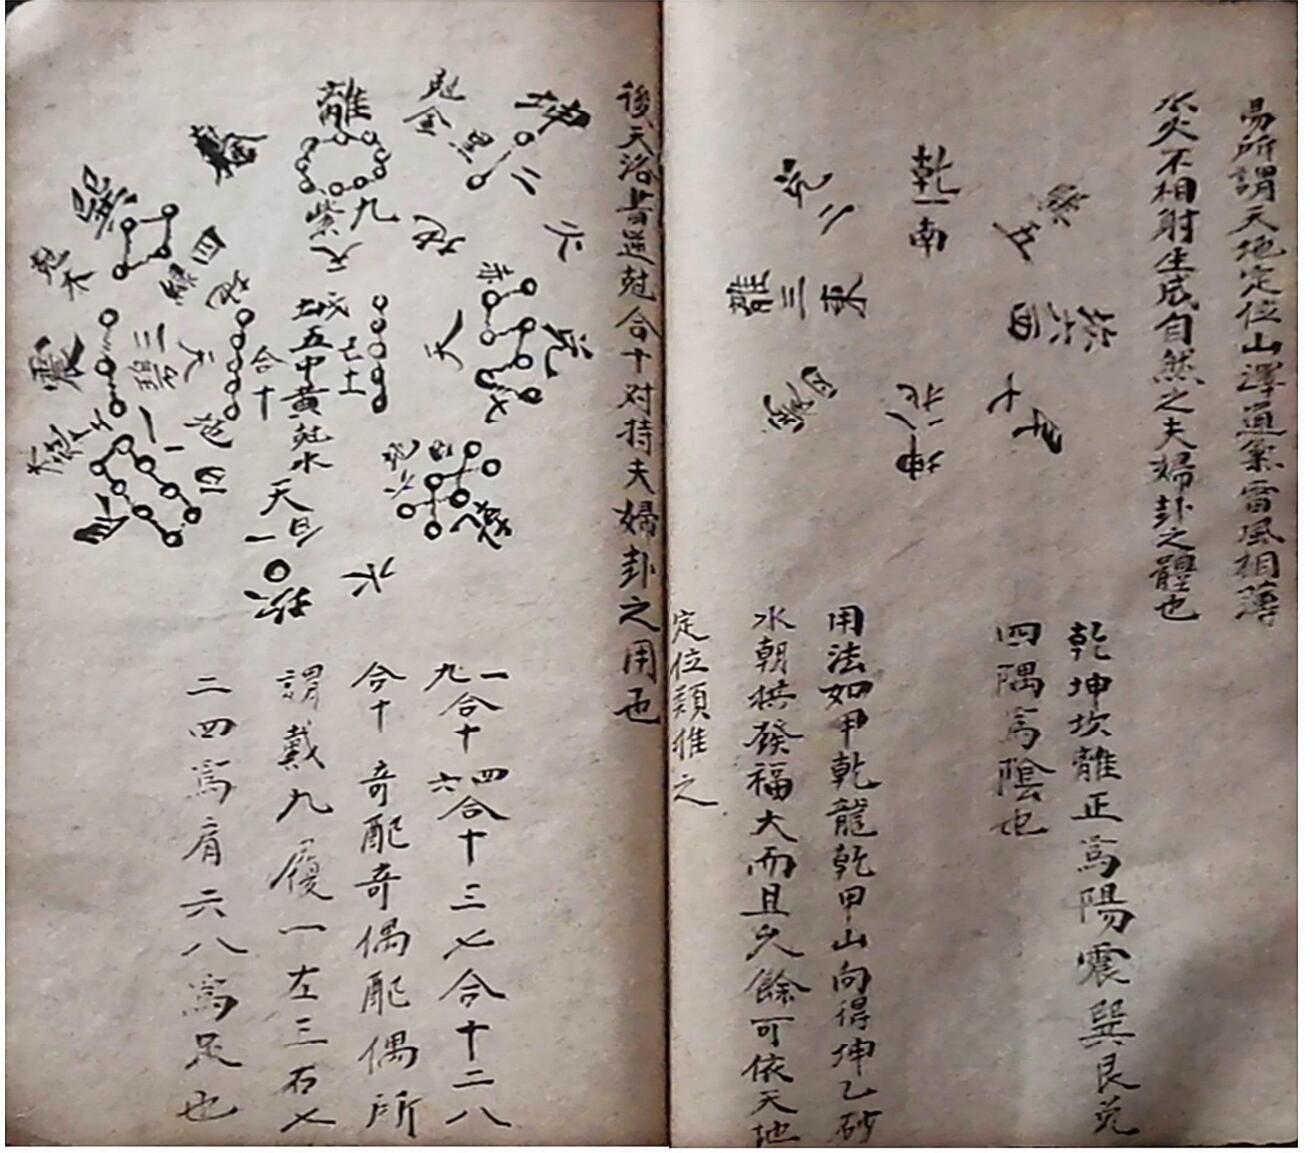 易所謂天地定位山澤通氣雷風相薄
水火不相射生成自然之夫婦卦之體也
乾一南
兌二
離三東
四震
巽五
坎六西
艮七
坤八北
乾坤坎離正為陽震巽艮兌
四隅為陰也
用法如甲乾龍乾甲山向得坤乙砂
水朝拱發福大而且久餘可依天地
定位類推之
後天洛書逆尅合十对待夫婦卦之用也
坤
二
黑
尅金
離
九
紫
火
巽
四
綠
尅木
震
三
碧
艮
兌
七
赤
乾
六
坎
一
五中黃尅水
合十
天
地
一九合十四六合十三七合十二八
合十奇配奇偶配偶所
謂戴九履一左三右七
二四為肩六八為足也